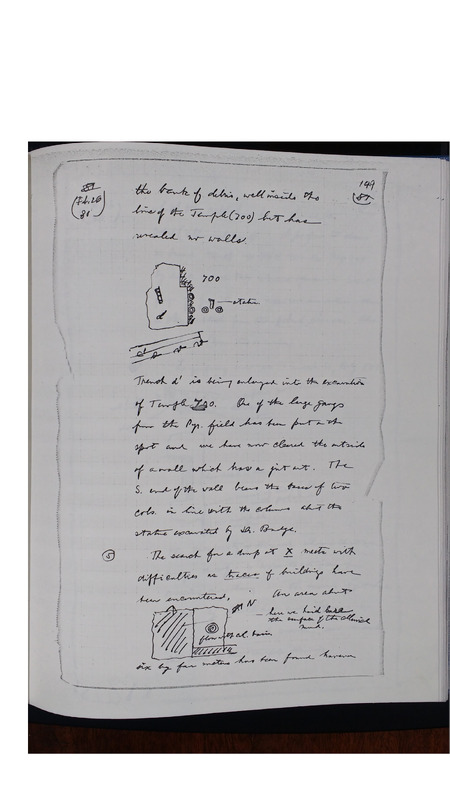 149
81
Feb. 28
the bank of debris, well inside the
line of the Temple (700) but has
revealed no walls.
700
statue
d'
Trench d' is being enlarged into the excavation
of Temple 700. One of the large gangs
from the Pyr. field has been put on the
spot and we have now cleared the outside
of a wall which has a
The
S. end of the wall bears the bases of two
cols. in line with the columns and the
statue excavated by Dr. Budge.
5
The search for a dump at X meets with
difficulties as traces of buildings have
been encountered. An area about
N
here we had
the surface of the alluvial
mud.
basin
six by four meters has been found however